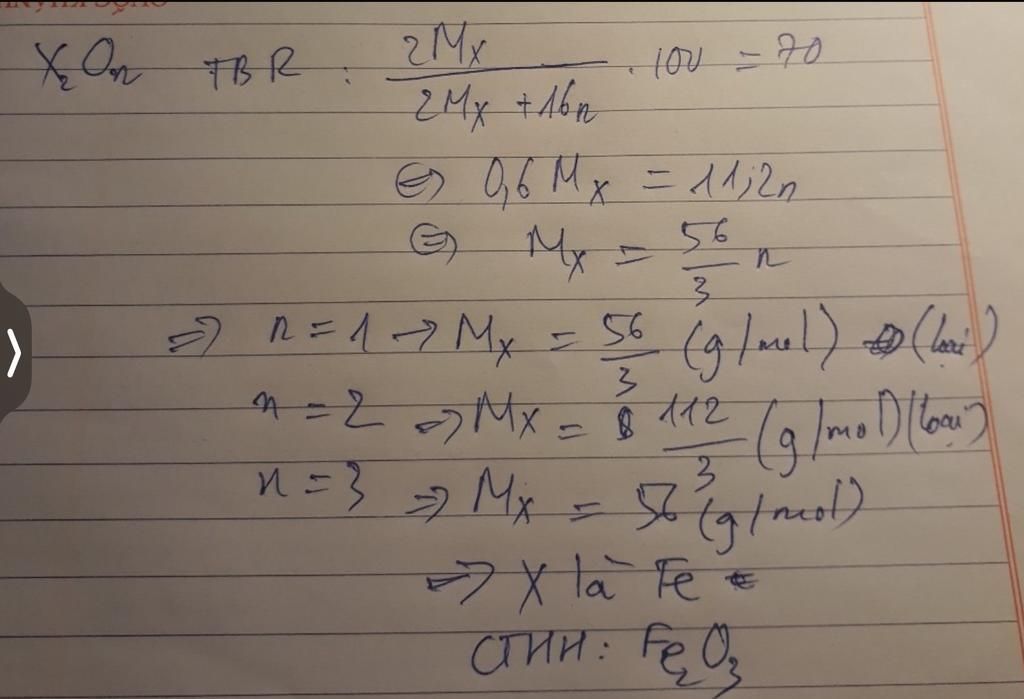 X₂Oₙ TBR : 2Mx / (2Mx + 16n) . 100 = 70
⇔ 0,6 Mx = 11,2n
⇔ Mx = 56/3 n
⇒ n = 1 → Mx = 56/3 (g/mol) (loại)
n = 2 ⇒ Mx = 112/3 (g/mol) (loại)
n = 3 ⇒ Mx = 56 (g/mol)
⇒ X là Fe
CTHH: Fe₂O₃